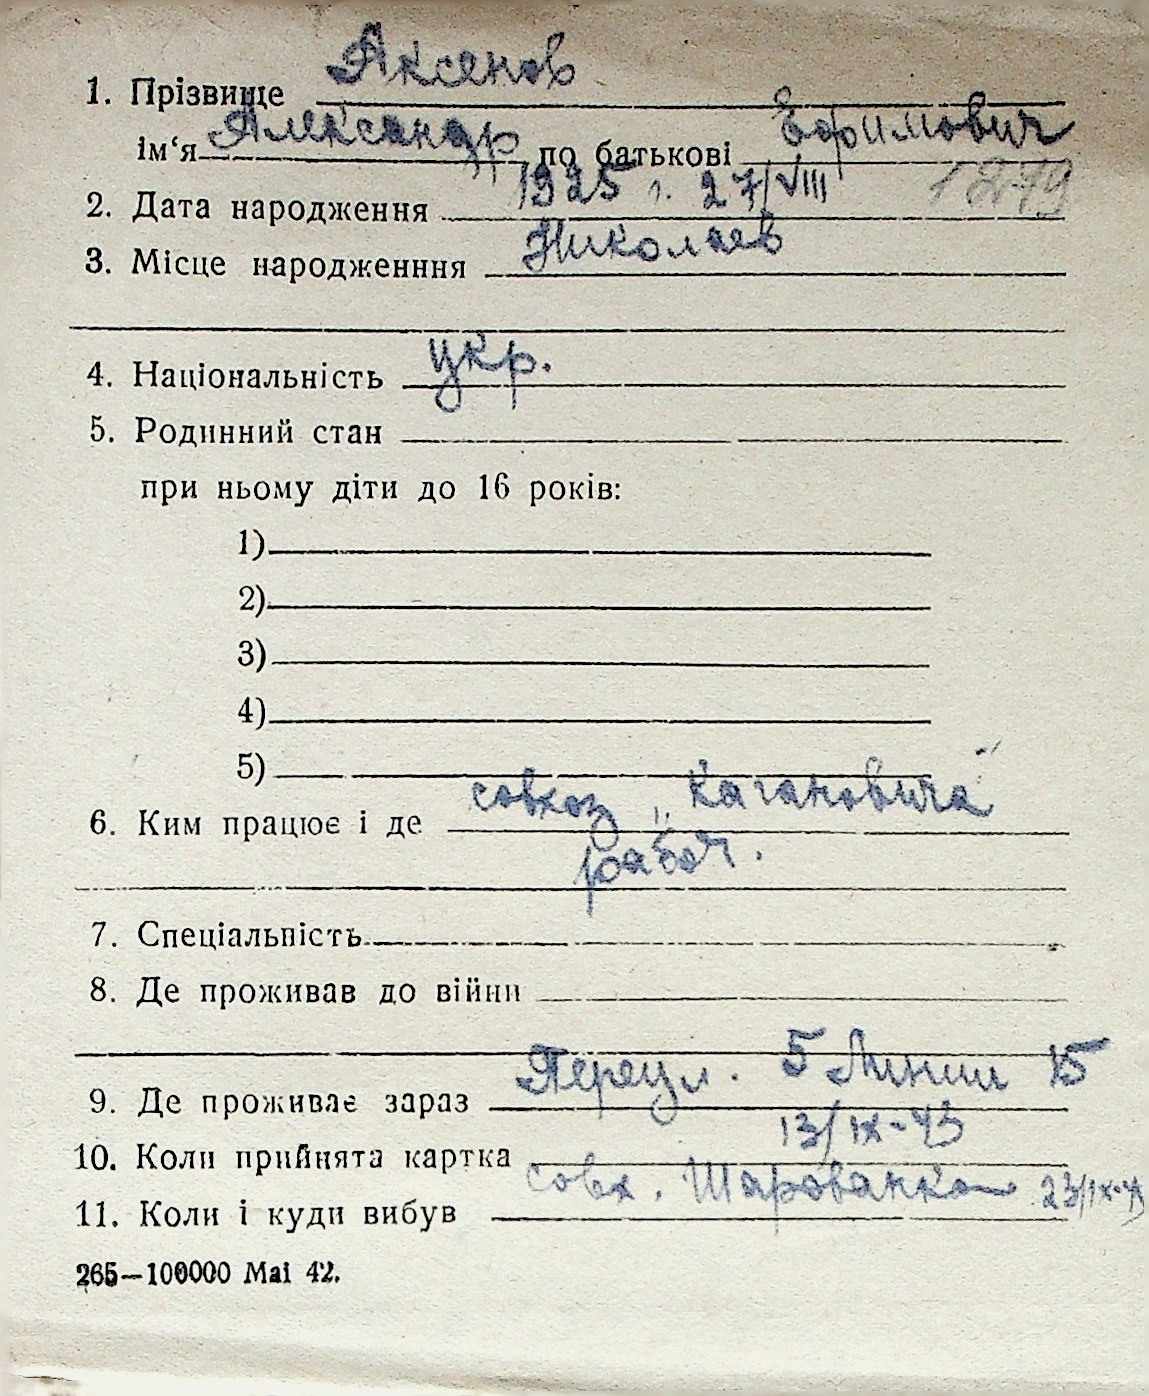 1. Прізвище Аксенов
ім‘я Александр по батькові Ефимович
2. Дата народження 1925 г. 27/VIII 1279
3. Місце народженння Николаев
4. Національність укр.
5. Родинний стан
при ньому діти до 16 років:
1)
2)
3)
4)
5)
6. Ким працює і де совхоз „Кагановича"
рабоч.
7. Спеціальність
8. Де проживав до війни
9. Де проживає зараз 5 Линии 15
10. Коли прийнята картка 13/IX-43
11. Коли і куди вибув совх. 23/IX-43
265—100000 Mai 42.